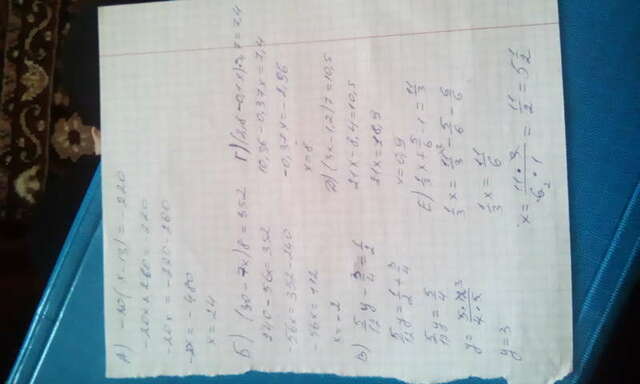 А) -20(x-13)=-220
-20x+260=-220
-20x=-220-260
-20x=-480
x=24
Б) (30-7x)8=352
240-56x=352
-56x=352-240
-56x=112
x=-2
В) 5/12 y - 3/4 = 1/2
5/12 y = 1/2 + 3/4
5/12 y = 5/4
y=3
Г) (2,8-0,1x)3,7=7,4
10,36-0,37x=7,4
-0,37x=-2,96
x=8
Д) (3x-1,2)7=10,5
21x-8,4=10,5
21x=18,9
x=0,9
Е) 1/3 x + 5/6 - 1 = 11/3
1/3 x = 11/6
x = 11·3/6·1 = 11/2 = 5 1/2